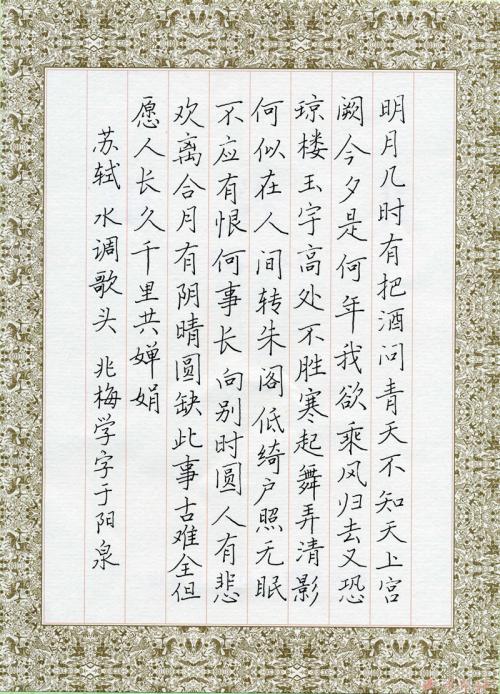 明月几时有把酒问青天不知天上宫
阙今夕是何年我欲乘风归去又恐
琼楼玉宇高处不胜寒起舞弄清影
何似在人间转朱阁低绮户照无眠
不应有恨何事长向别时圆人有悲
欢离合月有阴晴圆缺此事古难全但
愿人长久千里共婵娟
苏轼 水调歌头 兆梅学字于阳泉